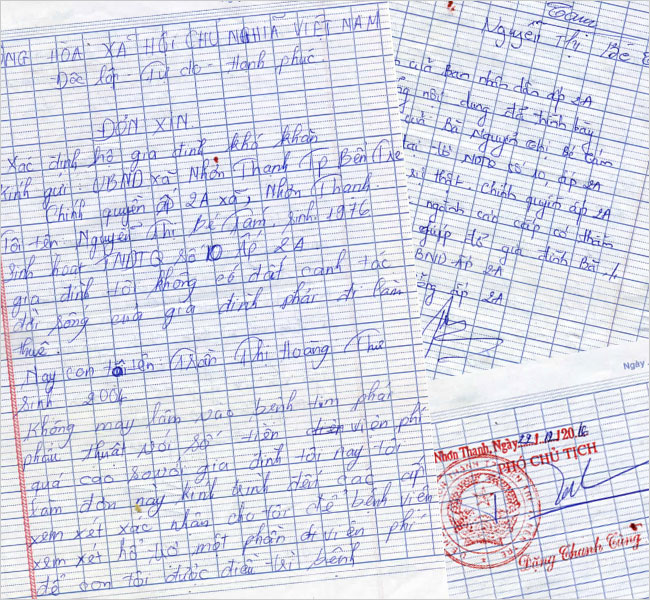 ỘNG HÒA XÃ HỘI CHỦ NGHĨA VIỆT NAM
Độc lập - Tự do - Hạnh phúc.
ĐƠN XIN
Xác định hộ gia đình khó khăn
Kính gửi: UBND xã Nhơn Thạnh Tp Bến Tre
Chính quyền ấp 2A xã, Nhơn Thạnh.
Tôi tên: Nguyễn Thị Bé Tám. Sinh. 1976
Sinh hoạt TNDTQ số 10 ấp 2A.
gia đình tôi không có đất canh tác
đời sống của gia đình phải đi làm
thuê.
Nay con tôi tên: Trần Thị Hoàng Thư
Sinh 2004
Không may lâm vào bệnh tim phải
phẩu thuật với số tiền viện phí
quá cao so với gia đình tôi nay tôi
làm đơn này kính trình đến các cấp
xem xét xác nhận cho tôi để bệnh viện
xem xét hổ trợ một phần viện phí
để con tôi được điều trị bệnh
Tám
Nguyễn Thị Bé
của Ban nhân dân ấp 2A
nội dung đã trình bày
Bà Nguyễn Thị Bé Tám
tại tổ NDTQ số 10, ấp 2A
sự thật. Chính quyền ấp 2A
ngành các cấp có thẩm
giúp đỡ gia đình Bà
BND ấp 2A
ấp 2A
Ngày
Nhơn Thạnh, Ngày 29/12/2016
PHÓ CHỦ TỊCH
Đặng Thanh Tùng